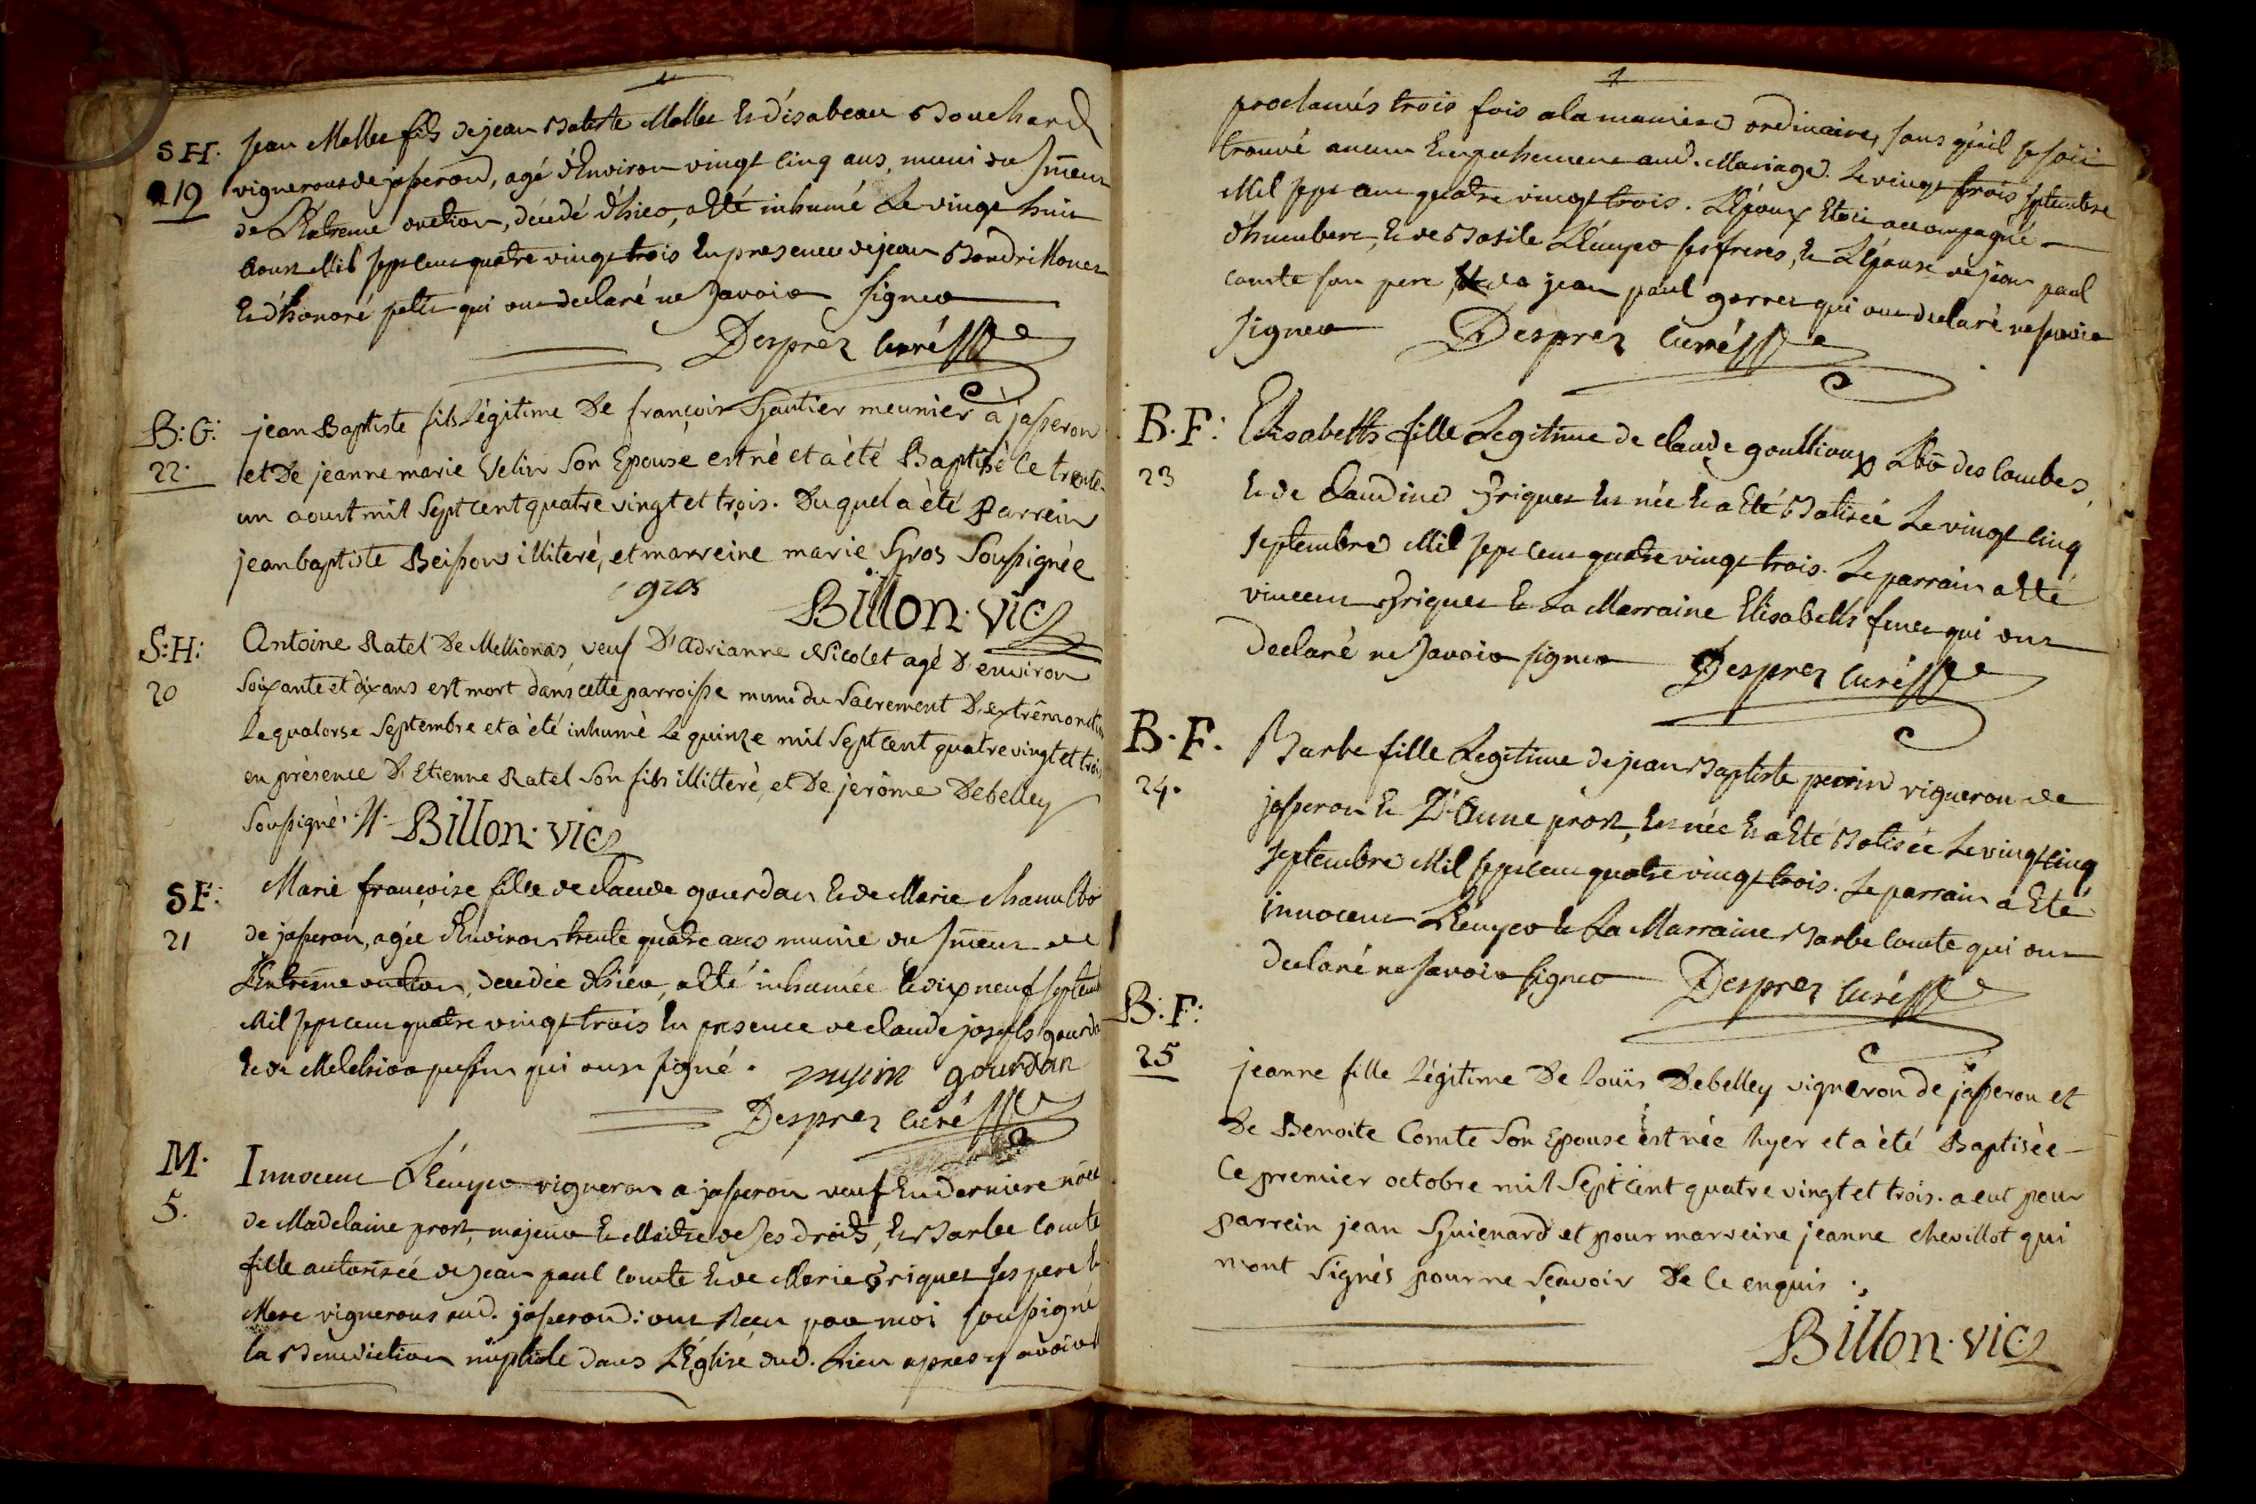 SH. Jean Mollet fils de jean Batiste Mollet et d'isabeau Bouchard
19 vignerons de josseron, agé d'Environ vingt cinq ans, muni du
de L'Extreme onction, décedé d'hier, a Eté inhumé Le vingt huit
Aoust Mil sept cent quatre vingt trois En presence de jean
Et d'honoré petit qui ont declaré ne savoir signer
Desprez Curé
B:G: jean Baptiste fils Légitime De françois Gautier meunier à josseron
22. et De jeanne marie Velin Son Epouse est né et a èté Baptisé le trente-
un aoust mil Sept Cent quatre vingt et trois. Du quel a èté Parrein
jean baptiste illiteré, et marreine marie Gros Soussignée
gros
Billon. vic
S:H: Antoine Ratel De Mellionas, veuf D'adrianne Nicolet agé D'environ
20 Soixante et dix ans est mort dans cette parroisse muni du Sacrement D'extrêmonction
Le quatorse Septembre et a èté inhumè Le quinze mil Sept cent quatre vingt et trois
en prèsence D'Etienne Ratel Son fils illitterè, et De jerôme Debelley
Soussignè. Billon. vic
SF: Marie françoise fille de claude gourdan Et de Marie
21 de josseron, agée d'Environ trente quatre ans munie du
L'Extreme onction, decedée d'hier, a Eté inhumée le dix neuf septembre
Mil sept cent quatre vingt trois En presence de claude joseph gourdan
Et de Melchior qui ont signé. gourdan
Desprez curé
M. Innocent vigneron a josseron veuf En derniere
5. de Madelaine prost, majeur Et Maitre de ses droits, Et Barbe Comte
fille autorisée de Jean paul Comte Et de Marie ses pere Et
Mere vignerons aud. josseron: ont Recu par moi soussigné
la Benediction nuptiale dans L'Église dud. Lieu apres y avoir
proclamés trois fois a la maniere ordinaire, sans qu'il se soit
trouvé aucun Empechement aud. Mariage. Le vingt trois septembre
Mil sept cent quatre vingt trois. L'époux Etoit accompagné
d'humbert, Et de Basile ses freres, Et L'épouse de jean paul
comte son pere, jean paul qui ont declaré ne savoir
signer Desprez Curé
B.F: Elisabeth fille Legitime de claude des Combes,
23 Et de Claudine Est née Et a Eté Batisée Le vingt Cinq
septembre Mil sept cent quatre vingt trois. Le parrain a Eté
vincent Et La Marraine Elisabeth qui ont
declaré ne savoir signer Desprez Curé
B.F. Barbe fille Legitime de jean Baptiste perrin vigneron de
24. josseron Et D'Anne prost, Est née Et a Eté Batisée Le vingt Cinq
septembre Mil sept cent quatre vingt trois. Le parrain a Eté
innocent Et La Marraine Barbe Comte qui ont
declaré ne savoir signer Desprez Curé
B:F:
25 jeanne fille Légitime De Louïs Debelley vigneron de josseron et
De Benoite Comte Son Epouse est née hyer et a èté Baptisèe
Ce premier octobre mil Sept cent quatre vingt et trois. a eut pour
parrein jean Guienard et pour marreine jeanne Chevillot qui
n'ont Signés pour ne Sçavoir De Ce enquis
Billon. vic